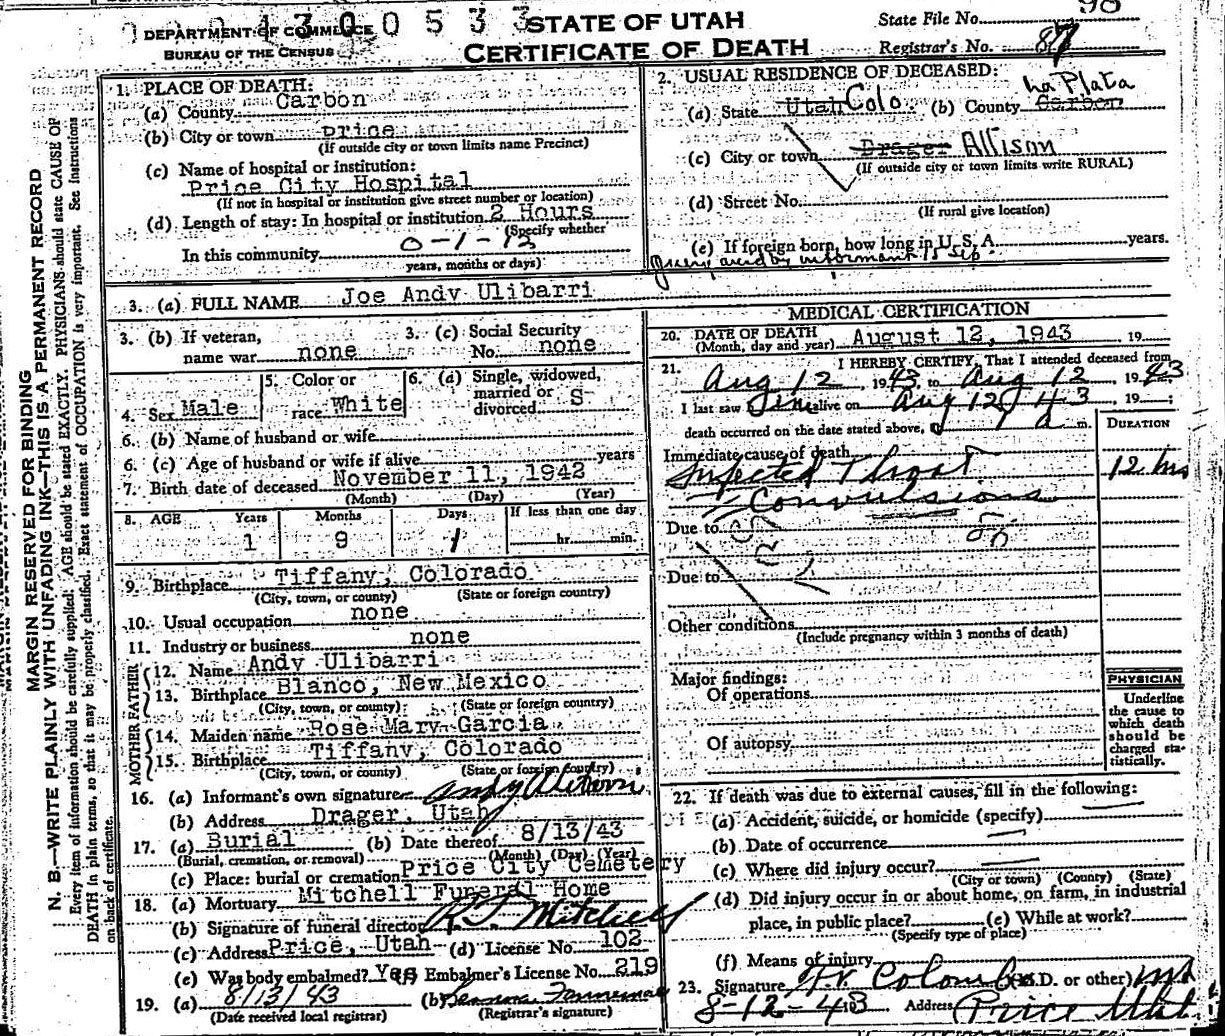 0 0 4 3 0 0 5 3 3
DEPARTMENT OF COMMERCE
BUREAU OF THE CENSUS
STATE OF UTAH
CERTIFICATE OF DEATH
State File No. 98
Registrar's No. 87
MARGIN RESERVED FOR BINDING
N. B.—WRITE PLAINLY WITH UNFADING INK—THIS IS A PERMANENT RECORD
Every item of information should be carefully supplied. AGE should be stated EXACTLY. PHYSICIANS should state CAUSE OF
DEATH in plain terms, so that it may be properly classified. Exact statement of OCCUPATION is very important. See Instructions
on back of certificate.
1. PLACE OF DEATH:
(a) County Carbon
(b) City or town price
(If outside city or town limits name Precinct)
(c) Name of hospital or institution:
Price City Hospital
(If not in hospital or institution give street number or location)
(d) Length of stay: In hospital or institution 2 Hours
(Specify whether
In this community 0-1-12
years, months or days)
2. USUAL RESIDENCE OF DECEASED:
(a) State Utah Colo. (b) County Carbon La Plata
(c) City or town Drager Allison
(If outside city or town limits write RURAL)
(d) Street No.
(If rural give location)
(e) If foreign born, how long in U. S. A. years.
by informant 15 Sep.
3. (a) FULL NAME Joe Andy Ulibarri
3. (b) If veteran, name war none
3. (c) Social Security No. none
4. Sex Male
5. Color or race White
6. (a) Single, widowed, married or divorced S
6. (b) Name of husband or wife
6. (c) Age of husband or wife if alive years
7. Birth date of deceased November 11, 1942
(Month) (Day) (Year)
8. AGE Years Months Days If less than one day
1 9 1 hr. min.
9. Birthplace Tiffany, Colorado
(City, town, or county) (State or foreign country)
10. Usual occupation none
11. Industry or business none
FATHER
12. Name Andy Ulibarri
13. Birthplace Blanco, New Mexico
(City, town, or county) (State or foreign country)
MOTHER
14. Maiden name Rose Mary Garcia
15. Birthplace Tiffany, Colorado
(City, town, or county) (State or foreign country)
16. (a) Informant's own signature Andy Ulibarri
(b) Address Drager, Utah
17. (a) Burial (b) Date thereof 8/13/43
(Burial, cremation, or removal) (Month) (Day) (Year)
(c) Place: burial or cremation Price City Cemetery
18. (a) Mortuary Mitchell Funeral Home
(b) Signature of funeral director Mitchell
(c) Address Price, Utah (d) License No. 102
(e) Was body embalmed? Yes Embalmer's License No. 219
19. (a) 8/13/43 (b)
(Date received local registrar) (Registrar's signature)
MEDICAL CERTIFICATION
20. DATE OF DEATH
(Month, day and year) August 12, 1943 19
21. I HEREBY CERTIFY, That I attended deceased from
Aug 12, 1943, to Aug 12, 1943
I last saw him alive on Aug 12 43, 19 ;
death occurred on the date stated above, a m.
DURATION
Immediate cause of death
Infected Throat 12 hrs
Convulsions
Due to
Due to
Other conditions
(Include pregnancy within 3 months of death)
Major findings:
Of operations
Of autopsy
PHYSICIAN
Underline
the cause to
which death
should be
charged sta-
tistically.
22. If death was due to external causes, fill in the following:
(a) Accident, suicide, or homicide (specify)
(b) Date of occurrence
(c) Where did injury occur?
(City or town) (County) (State)
(d) Did injury occur in or about home, on farm, in industrial
place, in public place? (e) While at work?
(Specify type of place)
(f) Means of injury
23. Signature Colombo (M.D. or other) MD
8-12-43 Address Price Utah